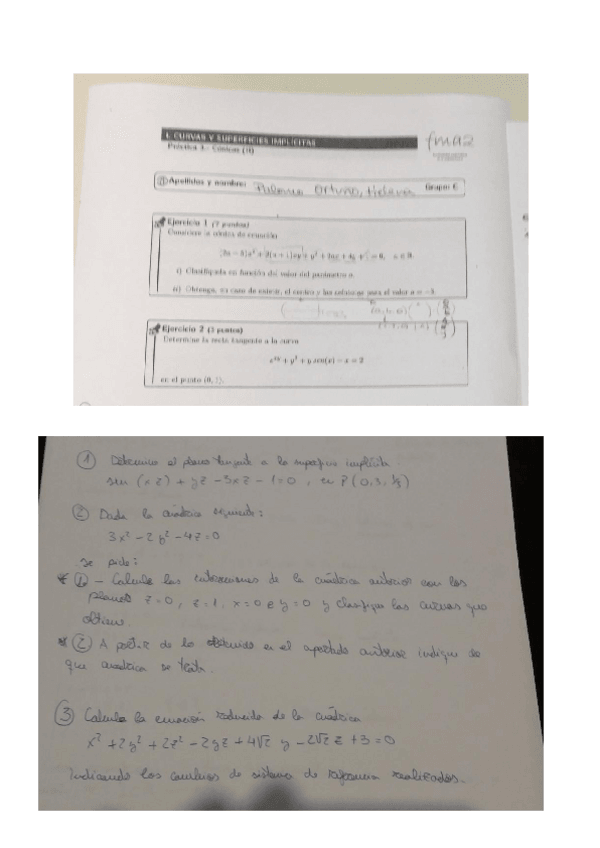 I. CURVAS Y SUPERFICIES IMPLÍCITAS
Práctica 3.- Cónicas (II)
fmaz
Apellidos y nombre: Ortuño, Grupo: 6
Ejercicio 1 (7 puntos)
Considere la cónica de ecuación
i) Clasifíquela en función del valor del parámetro a.
ii) Obtenga, en caso de existir, el centro y las asíntotas para el valor a = -3.
Ejercicio 2 (3 puntos)
Determine la recta tangente a la curva
en el punto (0, 1).
① Determine el plano tangente a la superficie implícita
sen (xz) + yz - 5xz - 1 = 0, en P(0,3,1/3)
② Dada la cuádrica siguiente:
3x² - 2y² - 4z = 0
se pide:
* ① - Calcule las intersecciones de la cuádrica anterior con los
planos z=0, z=1, x=0 e y=0 y clasifique las curvas que
obtiene.
* ② A partir de lo obtenido en el apartado anterior indique de
que cuádrica se trata.
③ Calcule la ecuación reducida de la cuádrica
x² + 2y² + 2z² - 2yz + 4√2 y - 2√2 z + 3 = 0
Indicando los cambios de sistema de referencia realizados.